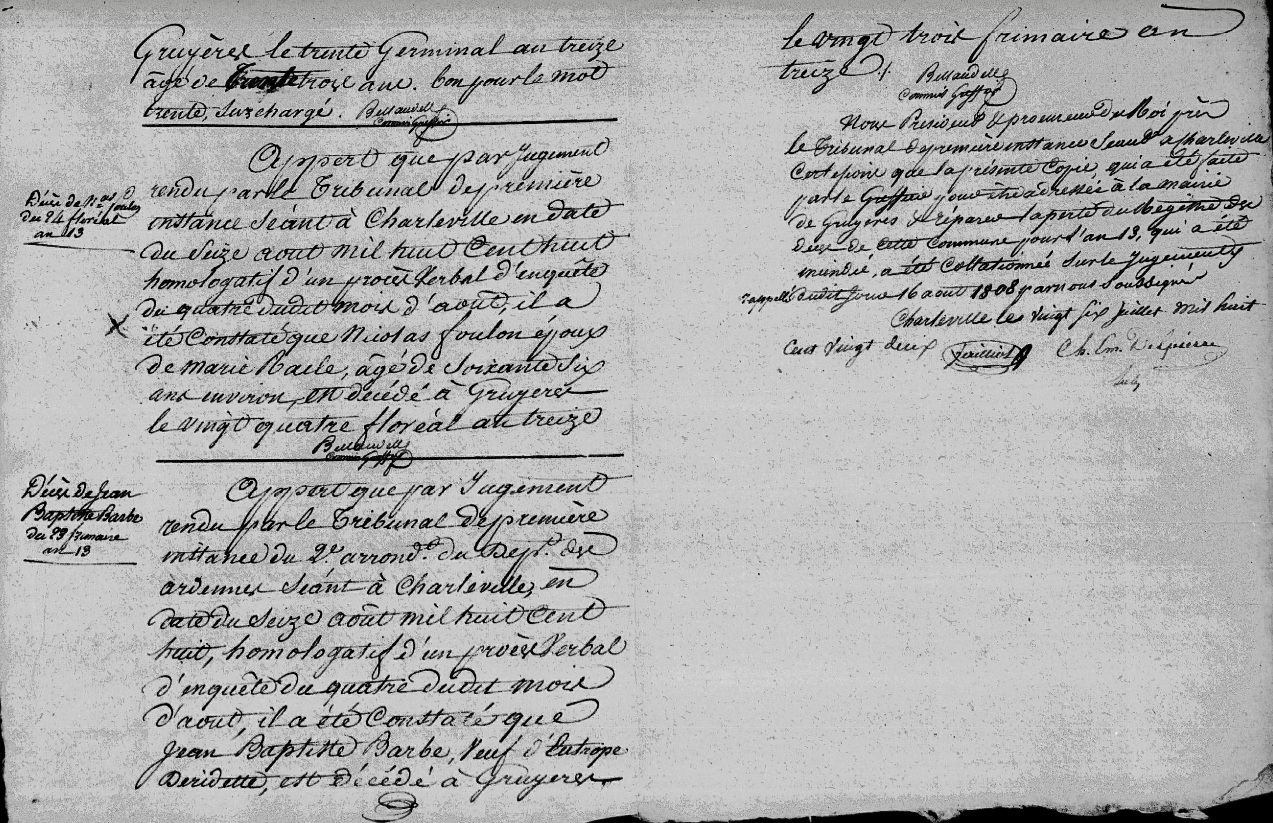 Gruyères le trente Germinal an treize
âgé de trente trois ans. bon pour le mot
trente, surchargé. Bellaudelle
Commis Greffier
Décès de Nas Foulon
du 24 floréal
an 13
Appert que par Jugement
rendu par le Tribunal de première
instance Séant à Charleville en date
du Seize aout mil huit Cent huit
homologatif d'un procès Verbal d'enquête
du quatre dudit mois d'août, il a
été Constaté que Nicolas foulon époux
de Marie Racle, âgé de Soixante Six
ans environ, est décédé à Gruyeres
le vingt quatre floréal an treize
Bellaudelle
Commis Greffier
Décès de Jean
Baptiste Barbe
du 23 frimaire
an 13
Appert que par Jugement
rendu par le Tribunal de première
instance du 2e. arrondt. du Dept. des
ardennes Séant à Charleville, en
date du Seize août mil huit Cent
huit, homologatif d'un procès Verbal
d'enquête du quatre dudit mois
d'aout, il a été Constaté que
Jean Baptiste Barbe, Veuf d'Eutrope
Deridette, est décédé à Gruyeres
le vingt trois frimaire an
treize ./. Bellaudelle
Commis Greffier
Nous Président & procureur du Roi près
le Tribunal de première instance Séant à Charleville
Certifions que la présente Copie, qui a été faite
par le Greffier pour être adressée à la mairie
de Gruyères & réparer la perte du Registre des
décès de Cette Commune pour l'an 13, qui a été
incendié, a été Collationnée sur le Jugement
rappellé dudit jour 16 aout 1808 par nous Soussignés
Charleville les vingt six Juillet mil huit
Cent vingt deux